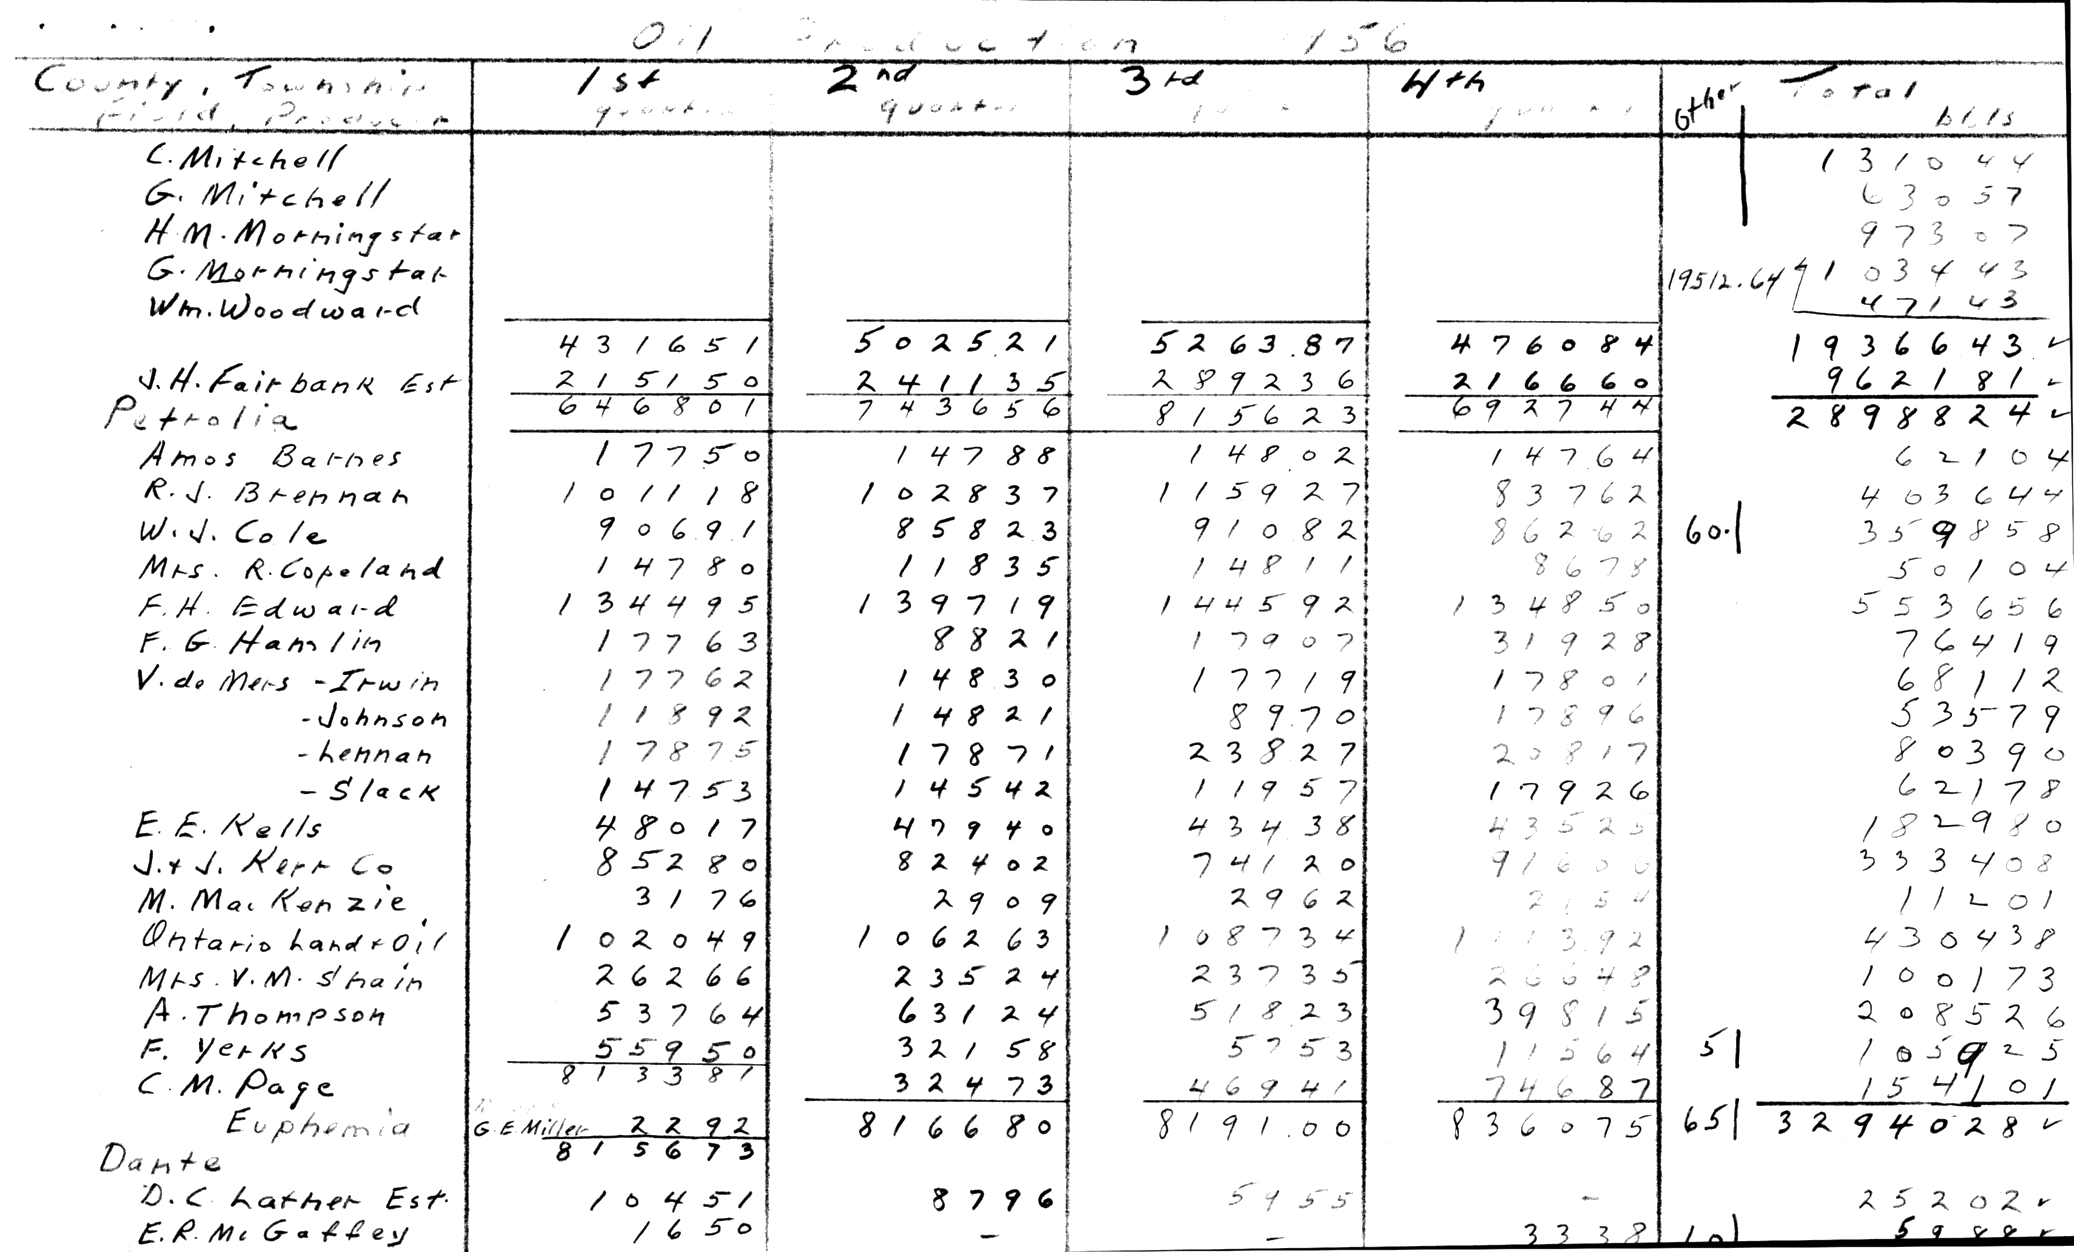 Oil Production 1956
County, Township 1st 2nd 3rd 4th Other Total
Field, Producer quarter quarter bbls
C. Mitchell 131044
G. Mitchell 63057
H.M. Morningstar 97307
G. Morningstar 19512.64 103443
Wm. Woodward 47143
431651 502521 526387 476084 1936643 ✓
J.H. Fairbank Est 215150 241135 289236 216660 962181 ✓
Petrolia 646801 743656 815623 692744 2898824 ✓
Amos Barnes 17750 14788 14802 14764 62104
R.J. Brennan 101118 102837 115927 83762 403644
W.J. Cole 90691 85823 91082 86262 60. 359858
Mrs. R. Copeland 14780 11835 14811 8678 50104
F.H. Edward 134495 139719 144592 134850 553656
F. G. Hamlin 17763 8821 17907 31928 76419
V. de Mers - Irwin 17762 14830 17719 17801 68112
- Johnson 11892 14821 8970 17896 53579
- Lennan 17875 17871 23827 20817 80390
- Slack 14753 14542 11957 17926 62178
E. E. Kells 48017 47940 43438 43525 182980
J. + J. Kerr Co 85280 82402 74120 91606 333408
M. MacKenzie 3176 2909 2962 2154 11201
Ontario Land + Oil 102049 106263 108734 113392 430438
Mrs. V. M. Shain 26266 23524 23735 26648 100173
A. Thompson 53764 63124 51823 39815 208526
F. Yerks 55950 32158 5753 11564 5 105925
813381
C. M. Page 32473 46941 74687 154101
Euphemia G.E Miller 2292 816680 819100 836075 65 3294028 ✓
815673
Dante
D. C. Lather Est. 10451 8796 5955 - 25202 ✓
E.R. McGaffey 1650 - - 3338 5988 ✓